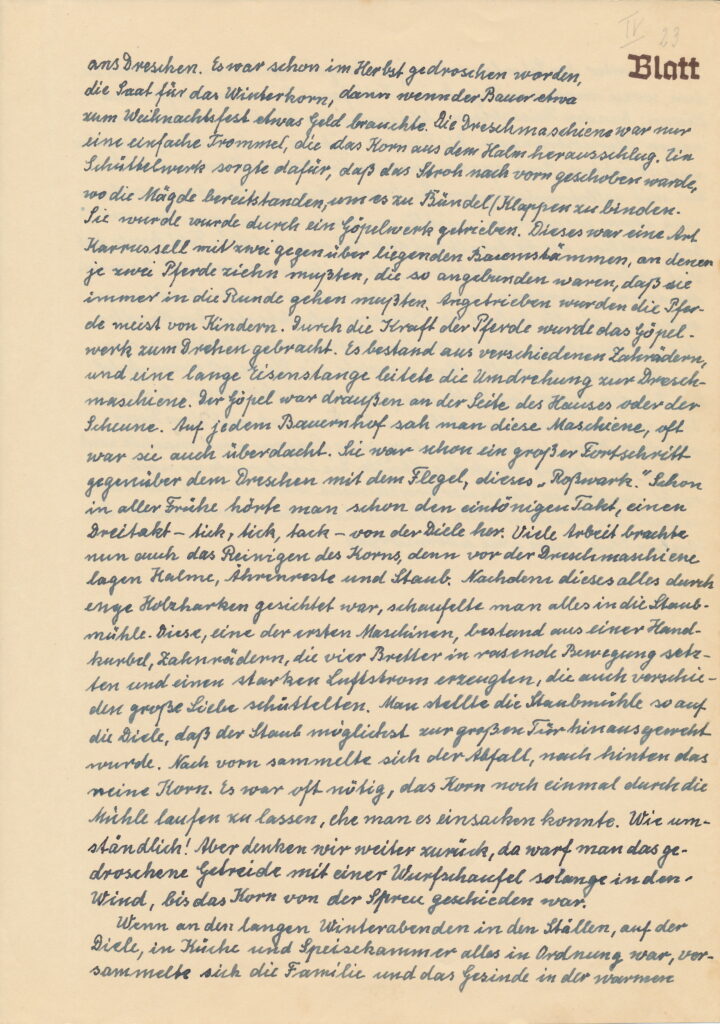 IV 23
Blatt
ans Dreschen. Es war schon im Herbst gedroschen worden,
die Saat für das Winterkorn, dann wenn der Bauer etwa
zum Weihnachtsfest etwas Geld brauchte. Die Dreschmaschiene war nur
eine einfache Trommel, die das Korn aus dem Halm herausschlug. Ein
Schüttelwerk sorgte dafür, daß das Stroh nach vorn geschoben wurde,
wo die Mägde bereitstanden, um es zu Bündel/Klappen zu binden.
Sie wurde wurde durch ein Göpelwerk getrieben. Dieses war eine Art
Karrussell mit zwei gegenüber liegenden Baumstämmen, an denen
je zwei Pferde ziehn mußten, die so angebunden waren, daß sie
immer in die Runde gehen mußten. Angetrieben wurden die Pfer-
de meist von Kindern. Durch die Kraft der Pferde wurde das Göpel-
werk zum Drehen gebracht. Es bestand aus verschiedenen Zahnrädern,
und eine lange Eisenstange leitete die Umdrehung zur Dresch-
maschiene. Der Göpel war draußen an der Seite des Hauses oder der
Scheune. Auf jedem Bauernhof sah man diese Maschiene, oft
war sie auch überdacht. Sie war schon ein großer Fortschritt
gegenüber dem Dreschen mit dem Flegel, dieses „Roßwark." Schon
in aller Frühe hörte man schon den eintönigen Takt, einen
Dreitakt – tick, tick, tack – von der Diele her. Viele Arbeit brachte
nun auch das Reinigen des Korns, denn vor der Dreschmaschiene
lagen Halme, Ährenreste und Staub. Nachdem dieses alles durch
enge Holzharken gesichtet war, schaufelte man alles in die Staub-
mühle. Diese, eine der ersten Maschinen, bestand aus einer Hand-
kurbel, Zahnrädern, die vier Bretter in rasende Bewegung setz-
ten und einen starken Luftstrom erzeugten, die auch verschie-
den große Siebe schüttelten. Man stellte die Staubmühle so auf
die Diele, daß der Staub möglichst zur großen Tür hinausgeweht
wurde. Nach vorn sammelte sich der Abfall, nach hinten das
reine Korn. Es war oft nötig, das Korn noch einmal durch die
Mühle laufen zu lassen, ehe man es einsacken konnte. Wie um-
ständlich! Aber denken wir weiter zurück, da warf man das ge-
droschene Getreide mit einer Wurfschaufel solange in den
Wind, bis das Korn von der Spreu geschieden war.
Wenn an den langen Winterabenden in den Ställen, auf der
Diele, in Küche und Speisekammer alles in Ordnung war, ver-
sammelte sich die Familie und das Gesinde in der warmen